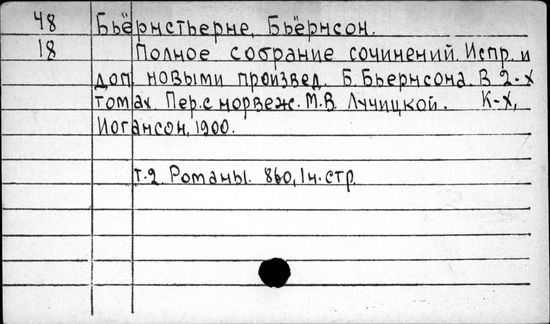 48 Бьёрнстьерне, Бьёрнсон.
18 Полное собрание сочинений. Испр. и
доп новыми произвед. Б. Бьернсона. В 2-х
томах. Пер. с норвеж. М.В. Лучицкой. К-Х,
Иогансон, 1900.
т.2. Романы. 860, 1н. стр.